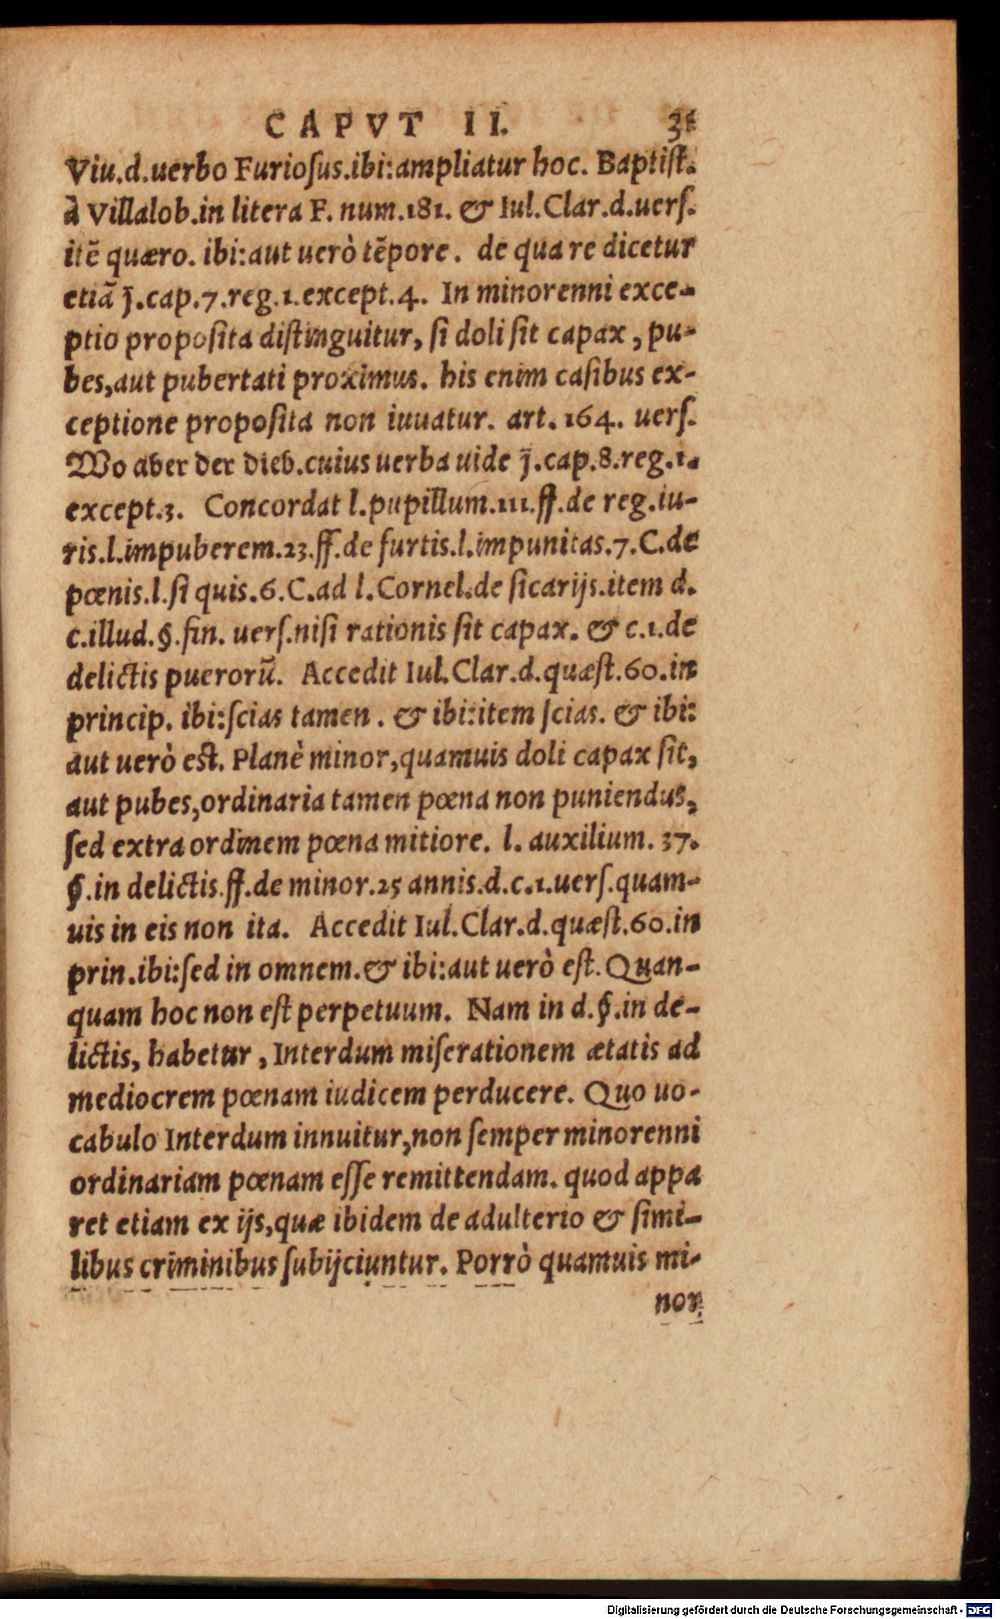 CAPVT II.
Viu.d.uerbo Furioſus.ibi:ampliatur hoc. Baptiſt.
à Villalob.in litera F. num.181. & Iul.Clar.d.uerſ.
itē quæro. ibi:aut uerò tēpore. de qua re dicetur
etiā j̄.cap.7.reg.1.except.4. In minorenni exce-
ptio propoſita diſtinguitur, ſi doli ſit capax, pu-
bes,aut pubertati proximus. his enim caſibus ex-
ceptione propoſita non iuuatur. art.164. uerſ.
Wo aber der dieb.cuius uerba uide j̄.cap.8.reg.1.
except.3. Concordat l.pupillum.111.ff.de reg.iu-
ris.l.impuberem.23.ff.de furtis.l.impunitas.7.C.de
pœnis.l.ſi quis.6.C.ad l.Cornel.de ſicarijs.item d.
c.illud.§.fin. uerſ.niſi rationis ſit capax. & c.1.de
delictis puerorū. Accedit Iul.Clar.d.quæſt.60.in
princip. ibi:ſcias tamen. & ibi:item ſcias. & ibi:
aut uerò eſt. Planè minor,quamuis doli capax ſit,
aut pubes,ordinaria tamen pœna non puniendus,
ſed extra ordinem pœna mitiore. l. auxilium. 37.
§.in delictis.ff.de minor.25 annis.d.c.1.uerſ.quam-
uis in eis non ita. Accedit Iul.Clar.d.quæſt.60.in
prin.ibi:ſed in omnem.& ibi:aut uerò eſt. Quan-
quam hoc non eſt perpetuum. Nam in d.§.in de-
lictis, habetur, Interdum miſerationem ætatis ad
mediocrem pœnam iudicem perducere. Quo uo-
cabulo Interdum innuitur,non ſemper minorenni
ordinariam pœnam eſſe remittendam. quod appa
ret etiam ex ijs,quæ ibidem de adulterio & ſimi-
libus criminibus ſubijciuntur. Porrò quamuis mi-
nor,
Digitalisierung gefördert durch die Deutsche Forschungsgemeinschaft - DFG